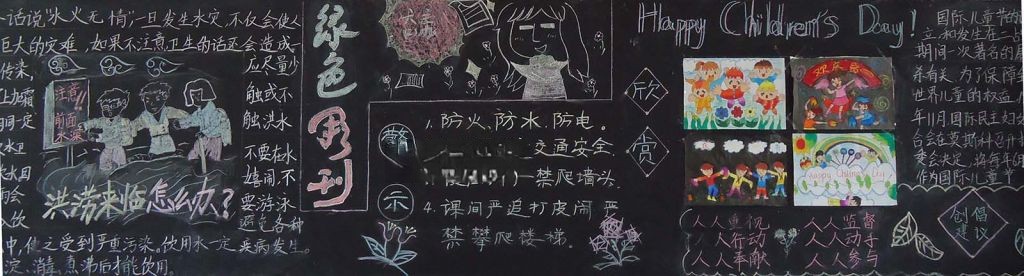 一话说"水火无情"一旦发生水灾,不仅会使人
巨大的灾难,如果不注意卫生的话还会造成一
传染,
应尽量少
触或不
触洪水
不要在水
嬉闹,不
要游泳
避免各种
疾病发生。
注意!!
前面
水深
洪涝来临怎么办?
中,使之受到严重污染。饮用水一定
淀、消毒、煮沸后才能饮用。
绿色
周刊
大家
警
示
1.防火、防水、防电。
交通安全.
禁爬墙头.
4.课间严追打皮闹严
禁攀爬楼梯.
欣
赏
Happy Children's Day!
欢乐
Happy Children Day
人人重视
人人行动
人人奉献
人人监督
人人动手
人人参与
国际儿童节的
立和发生在二战
期间一次著名的屠
杀有关,为了保障全
世界儿童的权益,
年11月国际民主妇女
合会在莫斯科召开
委会决定,将每年6
作为国际儿童节
创倡
建议